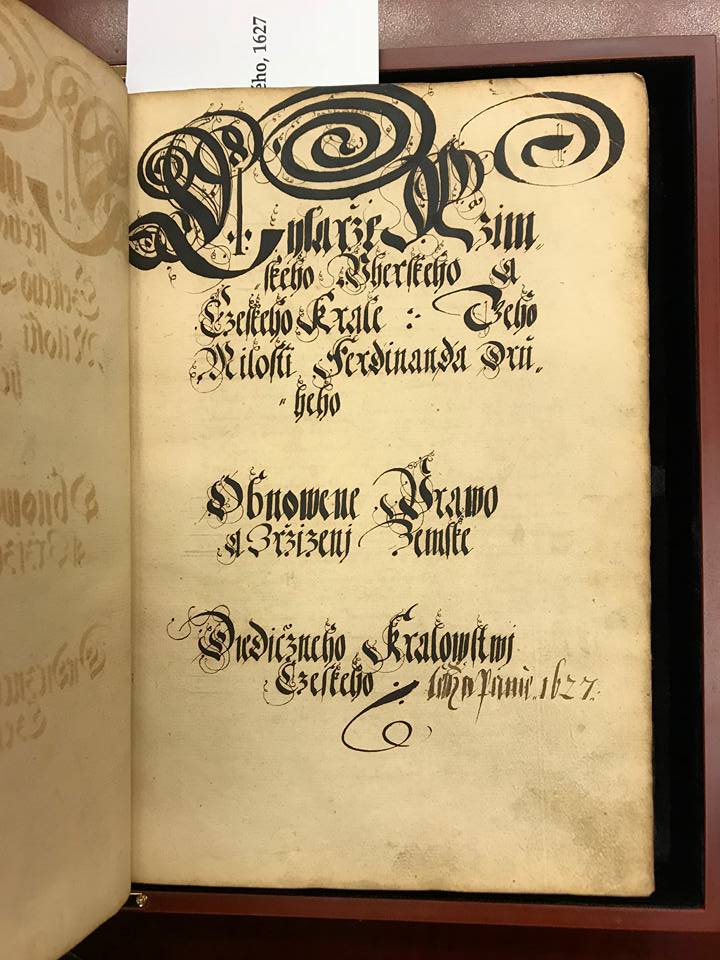 ého, 1627
Cysarze Rzim„
„skeho Vherskeho a
Czeskeho Krale :· Geho
Milosti Ferdinanda Dru„
„heho
Obnowene Prawo
a Zrzizenj Zemske
Diedicžneho Kralowstwj
Czeskeho · letha Panie 1627·